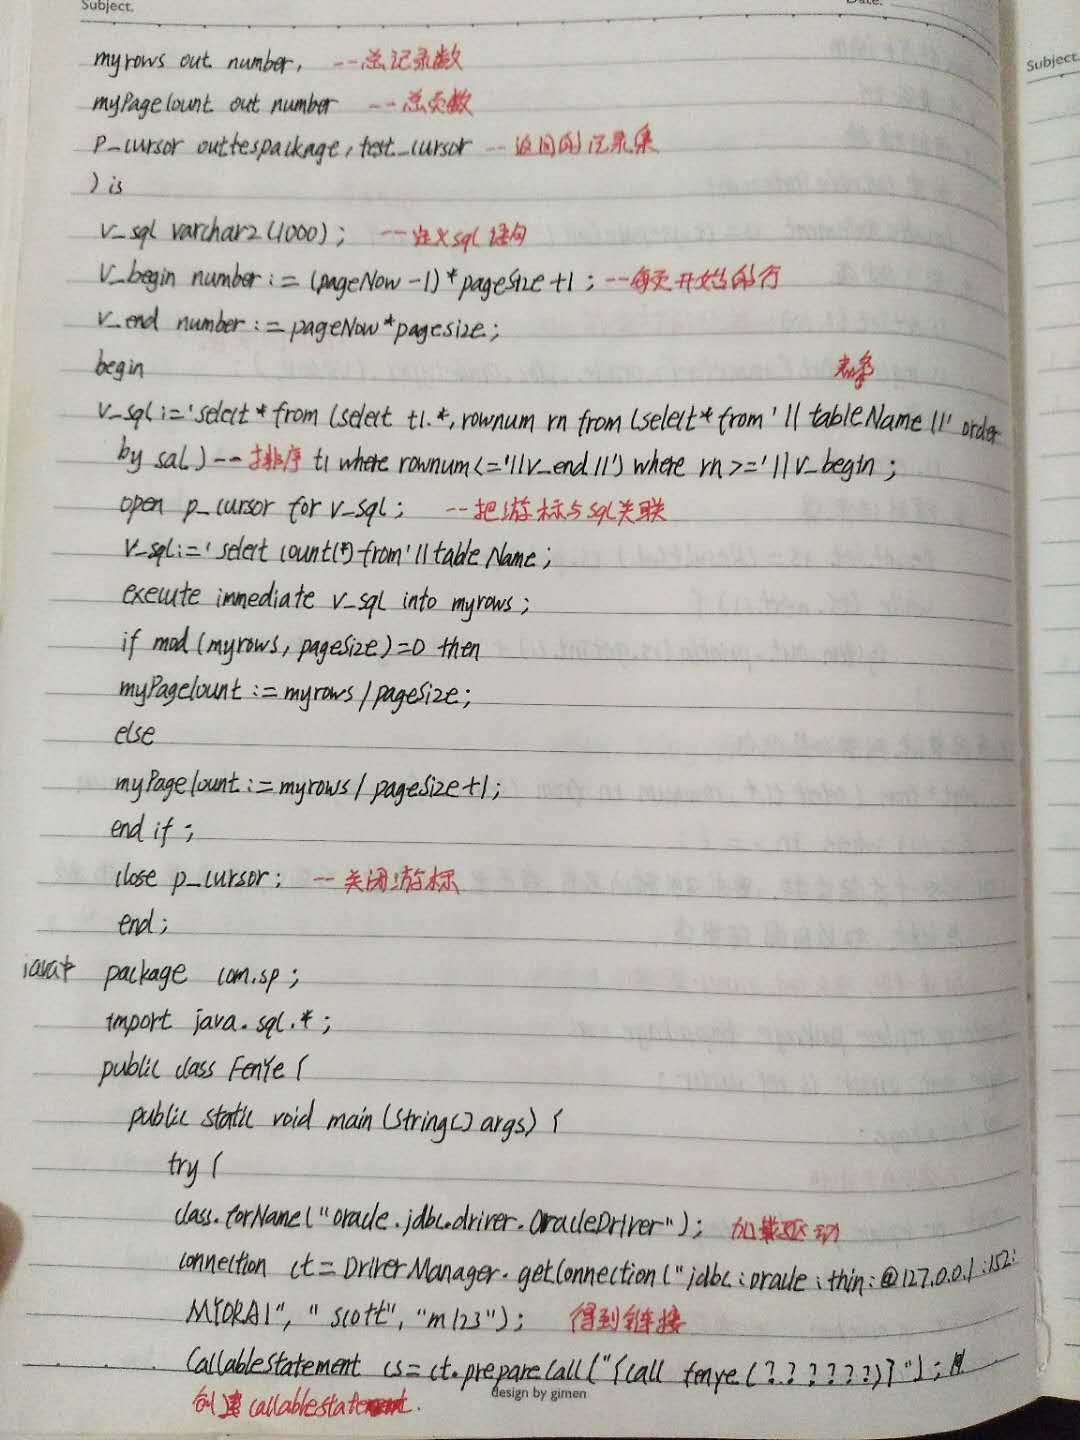 Subject.
Date:
Subject.
myrows out number, --总记录数
myPageCount out number --总页数
P_cursor out tespackage, test_cursor --返回的记录集
) is
v_sql varchar2(1000); --定义sql语句
v_begin number := (pageNow -1)*pageSize +1; --每页开始的行
v_end number := pageNow*pagesize;
begin
v_sql := 'select * from (select t1.*, rownum rn from (select * from ' || tableName ||' order
by sal) --排序 t1 where rownum<='||v_end||') where rn >=' || v_begin ;
open p_cursor for v_sql; --把游标与sql关联
v_sql := 'select count(*) from' || table Name;
execute immediate v_sql into myrows;
if mod (myrows, pageSize)=0 then
myPageCount := myrows / pageSize;
else
myPageCount := myrows / pageSize+1;
end if ;
close p_cursor; --关闭游标
end;
java中 package com.sp ;
import java.sql.*;
public class FenYe {
public static void main (String[] args) {
try {
class.forName("oracle.jdbc.driver.OracleDriver"); 加载驱动
Connection ct = DriverManager.getConnection("jdbc:oracle:thin:@127.0.0.1:152:
MYORA1", "scott", "m123"); 得到链接
CallableStatement cs = ct.prepareCall("{call fenye(??????)}"); //
创建callablestatement.
design by gimen